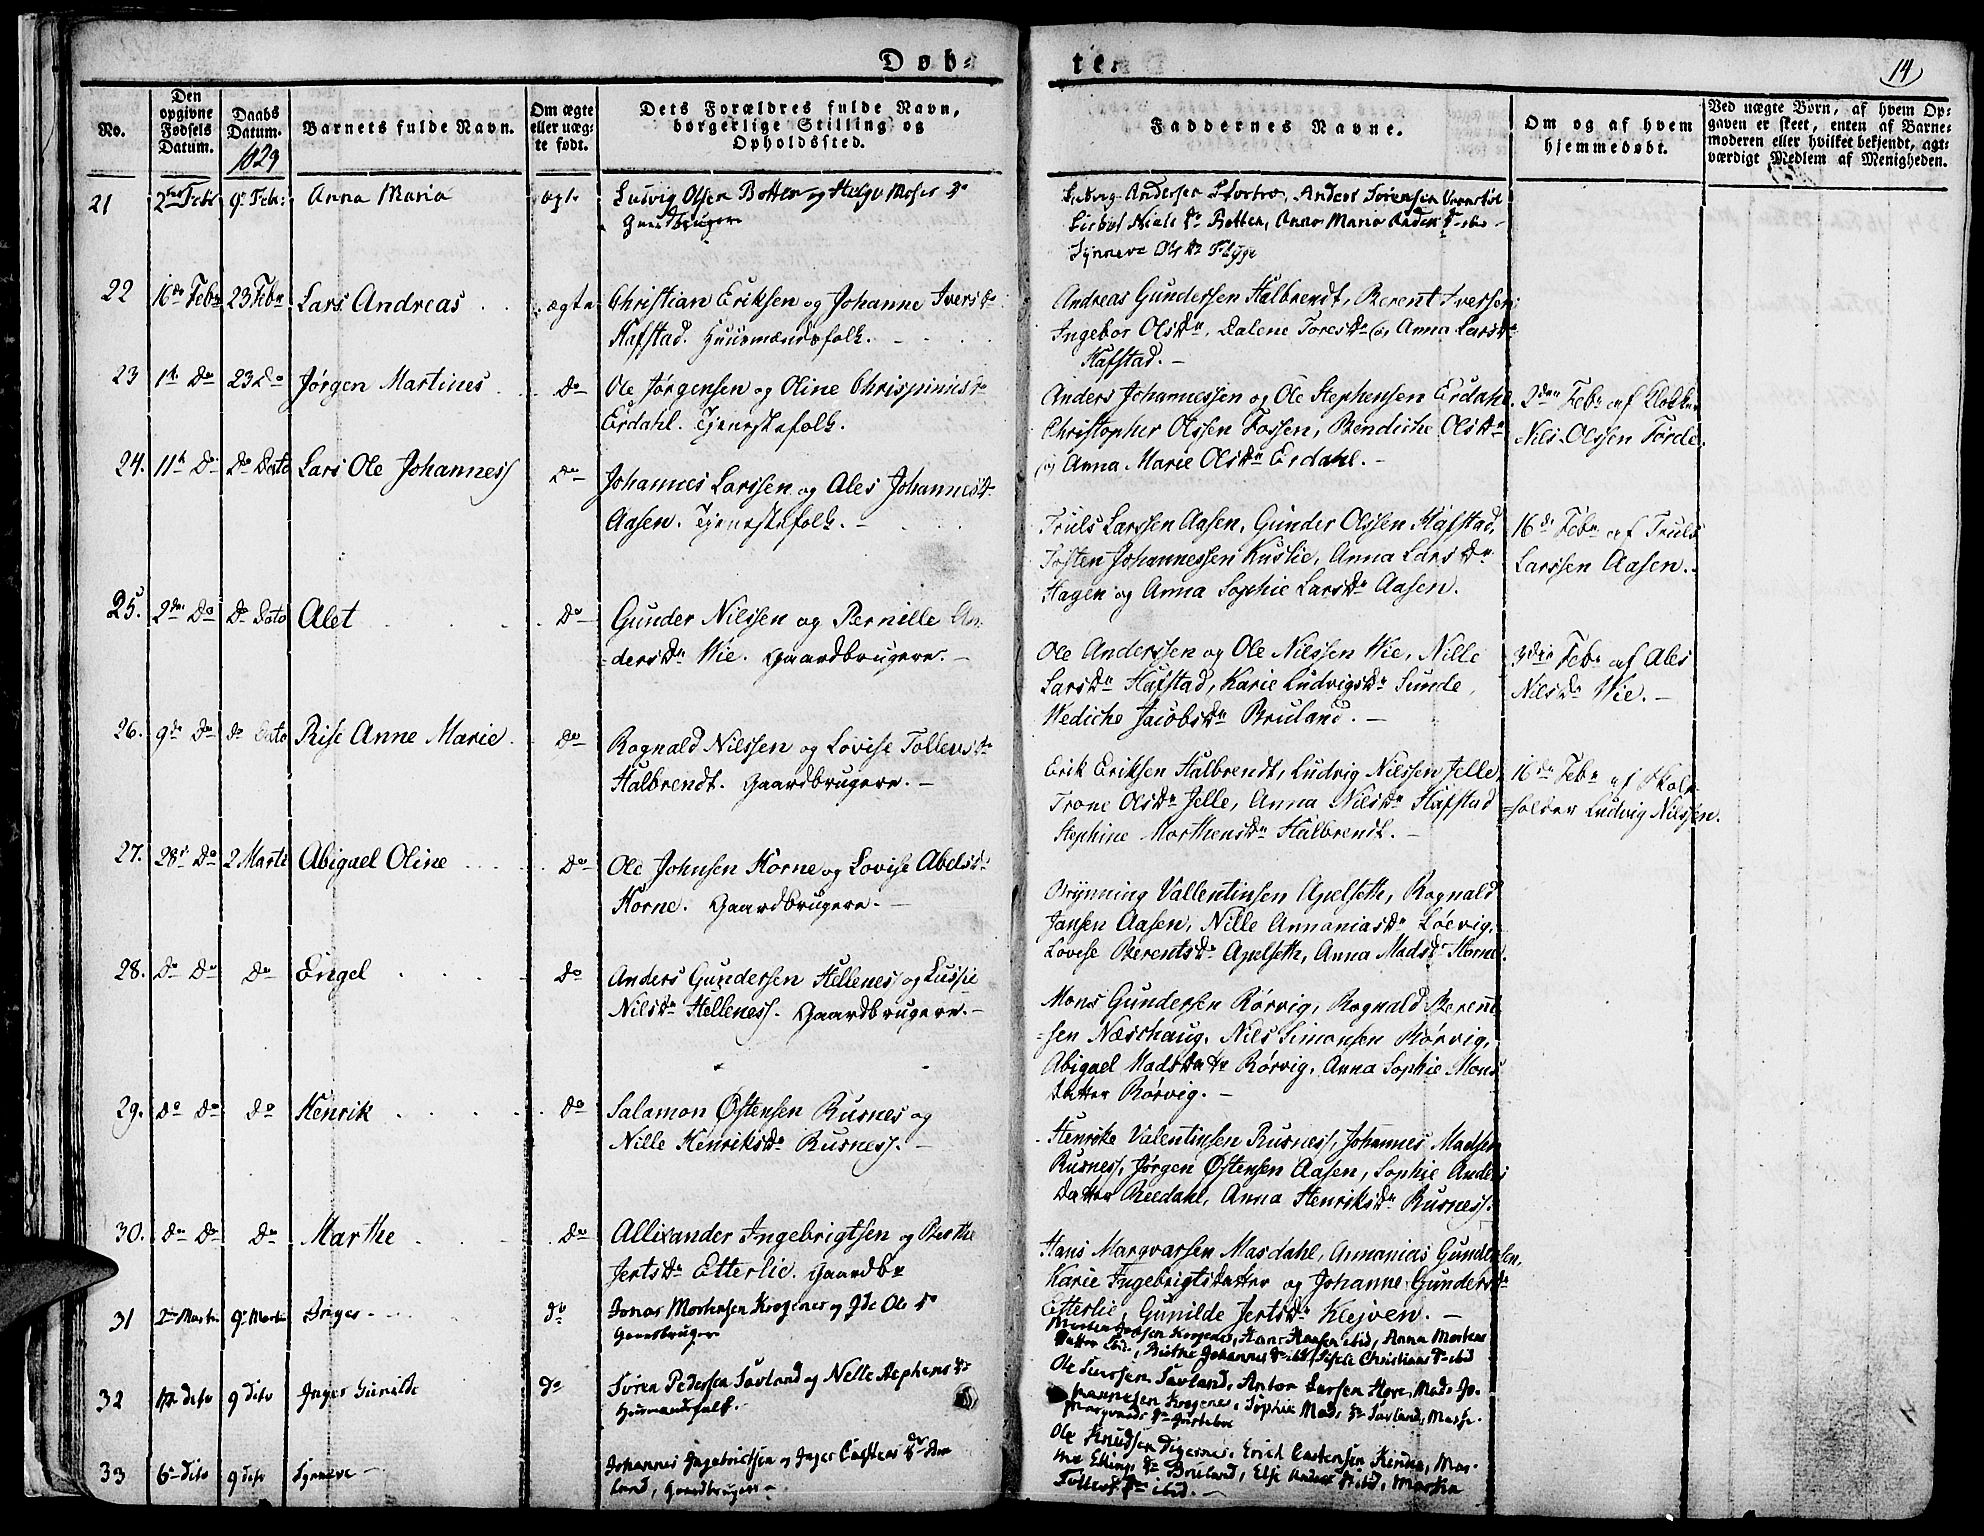 Døb-
te.
14
No.
Den opgivne Fødsels Datum.
Daabs Datum.
1829
Barnets fulde Navn.
Om ægte eller uæg-te født.
Dets Forældres fulde Navn, borgerlige Stilling og Opholdssted.
Faddernes Navne.
Om og af hvem hjemmedøbt.
Ved uægte Børn, af hvem Op-
gaven er skeet, enten af Barne-
moderen eller hvilket bekjendt, agt-
værdigt Medlem af Menigheden.
21 Febr 9 Febr: Anna Maria
Ludvig Olsen Botten og Helge Moses Dr
Gaardbruger
Ludvig Andersen Anders Sørensen
Lisbet Niels Dr Botten, Anna Maria Anders Dr ibd
Synneve Ols Dr Flyge
22 16de Febr 23 Febr Lars Andreas ægte
Christian Eriksen og Johanne Ivers Dr
Hafstad. Huusmandsfolk.
Andreas Gundersen Halbrendt, Berent Iversen
Ingebor Ols Dr, Dalene Tores Dr og Anna Lars Dr
Hafstad.
23 1ste Do 23 Do Jørgen Martines Do
Ole Jørgensen og Oline Chrispinus Dr
Erdahl. Tjenestefolk.
Anders Johannessen og Ole Stephensen Erdahl
Christopher Olssen Fossen, Bendiche Ols Dr
og Anna Marie Ols Dr Erdahl.
2den Febr af Klokker
Nils Olssen Førde.
24. 11te Do Do Dato Lars Ole Johanness Do
Johannes Larssen og Ales Johannes Dr
Aasen. Tjenestefolk.
Truls Larssen Aasen, Gunder Olssen Hafstad,
Tosten Johannessen Kuslie, Anna Lars Dr
Hagen og Anna Sophie Lars Dr Aasen.
16de Febr af Truls
Larssen Aasen.
25. 2den Do Do Dato Alet Do
Gunder Nilssen og Pernille An-
-ders Dr Wie. Gaardbrugere.
Ole Anderssen og Ole Nilssen Wie, Nille
Lars Dr Hafstad, Karie Ludvigs Dr Sunde,
Wediche Jacobs Dr Bruland.
3die Febr af Ales
Nils Dr Wie.
26. 9de Do Do Dato Rise Anne Marie. Do
Rognald Nilssen og Lovise Tollevs Dr
Halbrendt. Gaardbrugere.
Erik Eriksen Halbrendt, Ludvig Nilssen Jelle,
Trone Ols Dr Jelle, Anna Nils Dr Hafstad
Stephine Morthens Dr Halbrendt.
16de Febr af Skole-
-holder Ludvig Nilssen.
27. 28de Do 2 Marts Abigael Oline Do
Ole Johnsen Horne og Lovise Abels Dr
Horne. Gaardbrugere.
Brynning Vallentinsen Apelseth, Rognald
Jansen Aasen, Nille Annanias Dr Løevig,
Lovise Berents Dr Apelseth, Anna Mads Dr Horne.
28. Do Do Do Engel Do
Anders Gundersen Hellenes og Lussie
Nils Dr Helleness. Gaardbrugere.
Mons Gundersen Rørvig, Rognald Berent-
-sen Næschaug, Nils Simonsen Rørvig,
Abigael Mads Datter Rørvig, Anna Sophie Mons
Datter Rørvig.
29. Do Do Do Henrik Do
Salamon Østensen Rusnes og
Nille Henriks Dr Rusness.
Henrike Valentinsen Rusness, Johannes Madsen
Rusness, Jørgen Østensen Aasen, Sophie Anders
Datter Reedahl, Anna Henriks Dr Rusness.
30. Do Do Do Marthe Do
Allixander Ingebrigtsen og Berthe
Jerts Dr Etterlie. Gaardbr
Hans Marqvarsen Masdahl, Annanias Gundersen,
Karie Ingebrigtsdatter og Johanne Gunders Dr
Etterlie, Gunilde Jerts Dr Klejven.
31 Marts 9 Marts Inger Do
Jonas Mortensen Krogenes og Ide Ols Dr
Gaardbruger
Krogenes, Hans Hansen ibid, Anna Mortens
Datter ibid, Birthe Johannes Dr ibd, Sisele Christians Dr ibid
32 dito 9 dito Inger Gunilde Do
Søren Pedersen Savland og Nille Stephens Dr
Huusmandsfolk.
Ole Savland, Anton Larsen Hove, Mads Jo-
hannesen Krogenes, Sophie Mads Dr Savland,
33 6 dito 9 dito Synneve
Johannes Ingebrictsen og Inger Carstens Dr
land, Gaardbruger
Ole Knudsen Digernes, Erich Carstensen
Ellings Dr Bruland, Else Anders Dr ibid, Martha
Tollevs Dr ibid.